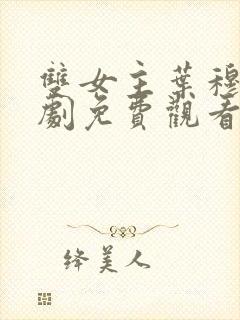 雙女主葉穆
劇免費觀看
绛美人